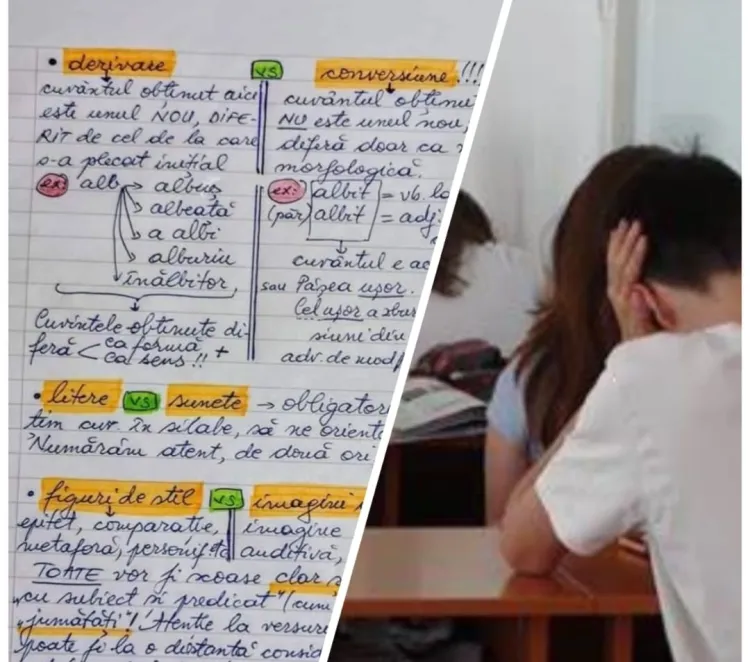 • derivare
cuvântul obținut aici
este unul NOU, DIFE-
RIT de cel de la care
s-a plecat inițial
ex: alb → albuș
→ albeață
→ a albi
→ alburiu
→ înălbitor
Cuvintele obținute di-
feră < ca formă +
ca sens!!
vs
conversiune!!!
cuvântul obținu
NU este unul nou,
diferă doar ca
morfologică.
ex: albit = vb. la
(păr) albit = adj
cuvântul e ac
sau Pășea ușor.
Cel ușor a zbur
adv. de mod
• litere vs sunete → obligator
țim cuv. în silabe, să ne orient
Numărăm atent, de două ori
• figuri de stil vs imagini
epitet, comparație,
metaforă, personif
imagine
auditivă,
TOATE vor fi scoase clar
„cu subiect și predicat" (cum
„jumătăți"! Atenție la versuri
poate fi la o distanță consid